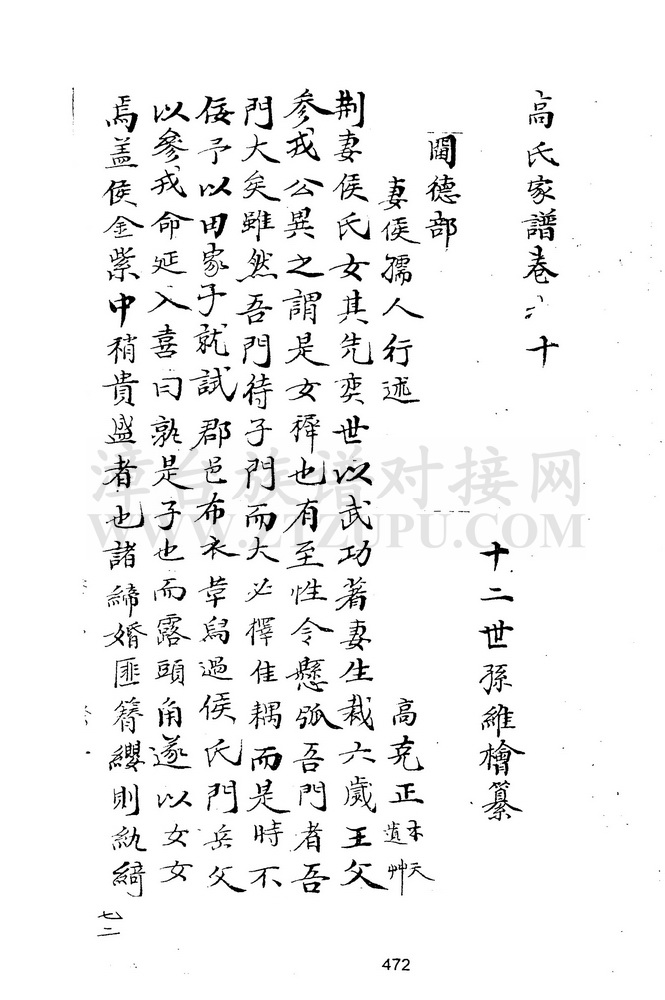 高氏家譜卷六十
十二世孫維檜纂
閫德部
妻侯孺人行述
高克正 木天遺艸
荆妻侯氏女其先奕世以武功著妻生裁六歲王父
参戎公異之謂是女穉也有至性令懸弧吾門者吾
門大矣雖然吾門待子門而大必擇佳耦而是時不
佞予以田家子就試郡邑布衣草舄過侯氏門岳父
以參戎命延入喜曰孰是子也而露頭角遂以女女
焉盖侯金紫中稍貴盛者也諸締婚匪簪纓則紈綺
七二
漳台族谱对接网
WWW.ZTZUPU.COM
472